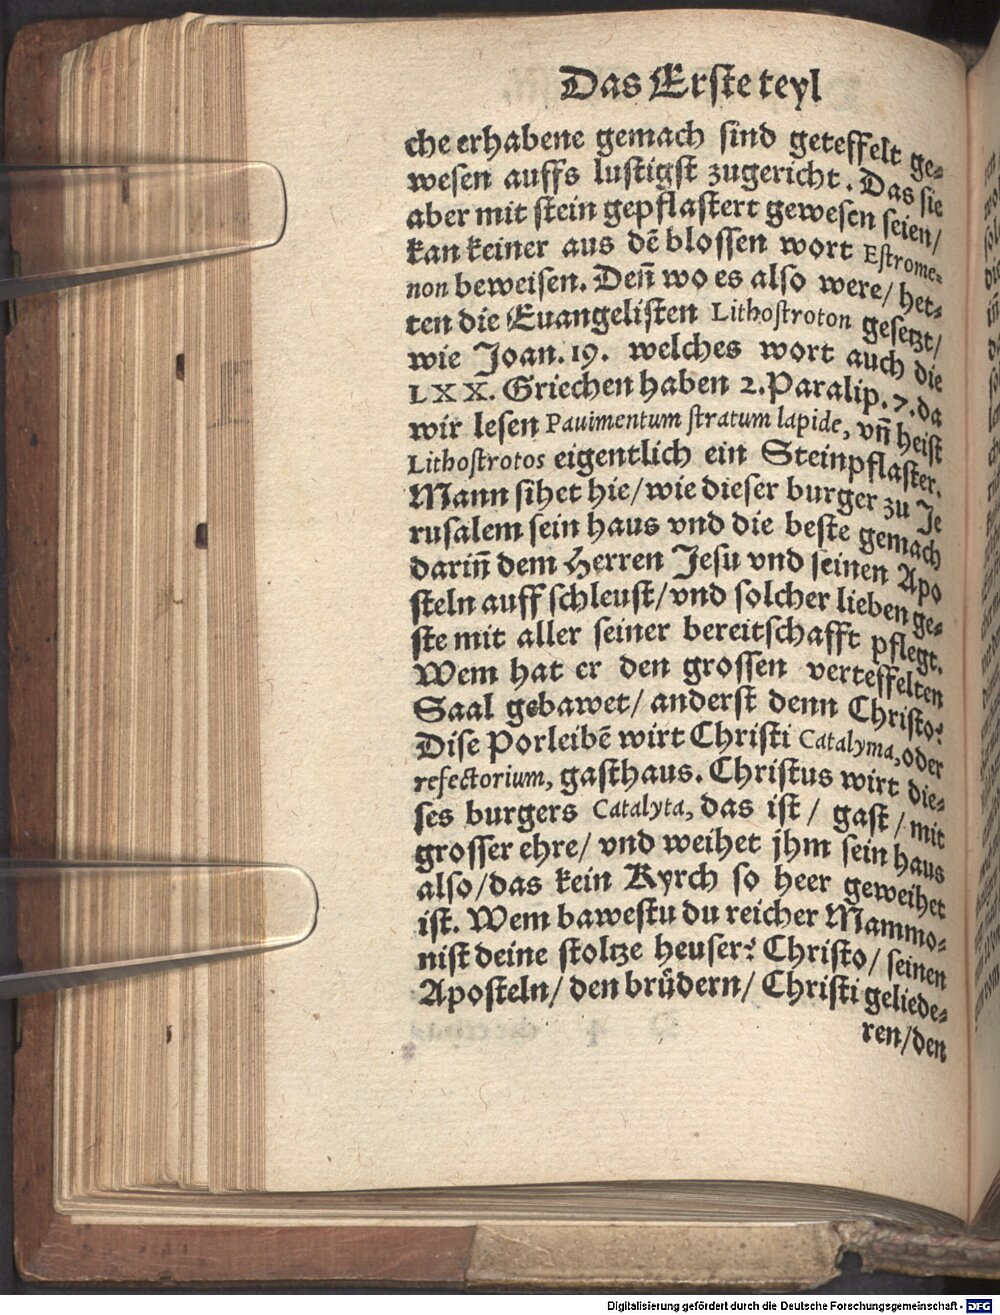 Das Erste teyl
che erhabene gemach sind geteffelt ge⸗
wesen auffs lustigst zugericht. Das sie
aber mit stein gepflastert gewesen seien/
kan keiner aus dē blossen wort Estrome⸗
non beweisen. Deñ wo es also were/ het⸗
ten die Euangelisten Lithostroton gesetzt/
wie Joan. 19. welches wort auch die
LXX. Griechen haben 2. Paralip. 7. da
wir lesen Pauimentum stratum lapide, vñ heist
Lithostrotos eigentlich ein Steinpflaster.
Mann sihet hie/ wie dieser burger zu Je
rusalem sein haus vnd die beste gemach
dariñ dem Herren Jesu vnd seinen Apo
steln auff schleust/ vnd solcher lieben ge⸗
ste mit aller seiner bereitschafft pflegt.
Wem hat er den grossen verteffelten
Saal gebawet/ anderst denn Christo?
Dise Porleibē wirt Christi Catalyma, oder
refectorium, gasthaus. Christus wirt die⸗
ses burgers Catalyta, das ist/ gast/ mit
grosser ehre/ vnd weihet jhm sein haus
also/ das kein Kyrch so heer geweihet
ist. Wem bawestu du reicher Mammo⸗
nist deine stoltze heuser? Christo/ seinen
Aposteln/ den brüdern/ Christi geliede⸗
ren/ den
Digitalisierung gefördert durch die Deutsche Forschungsgemeinschaft - DFG